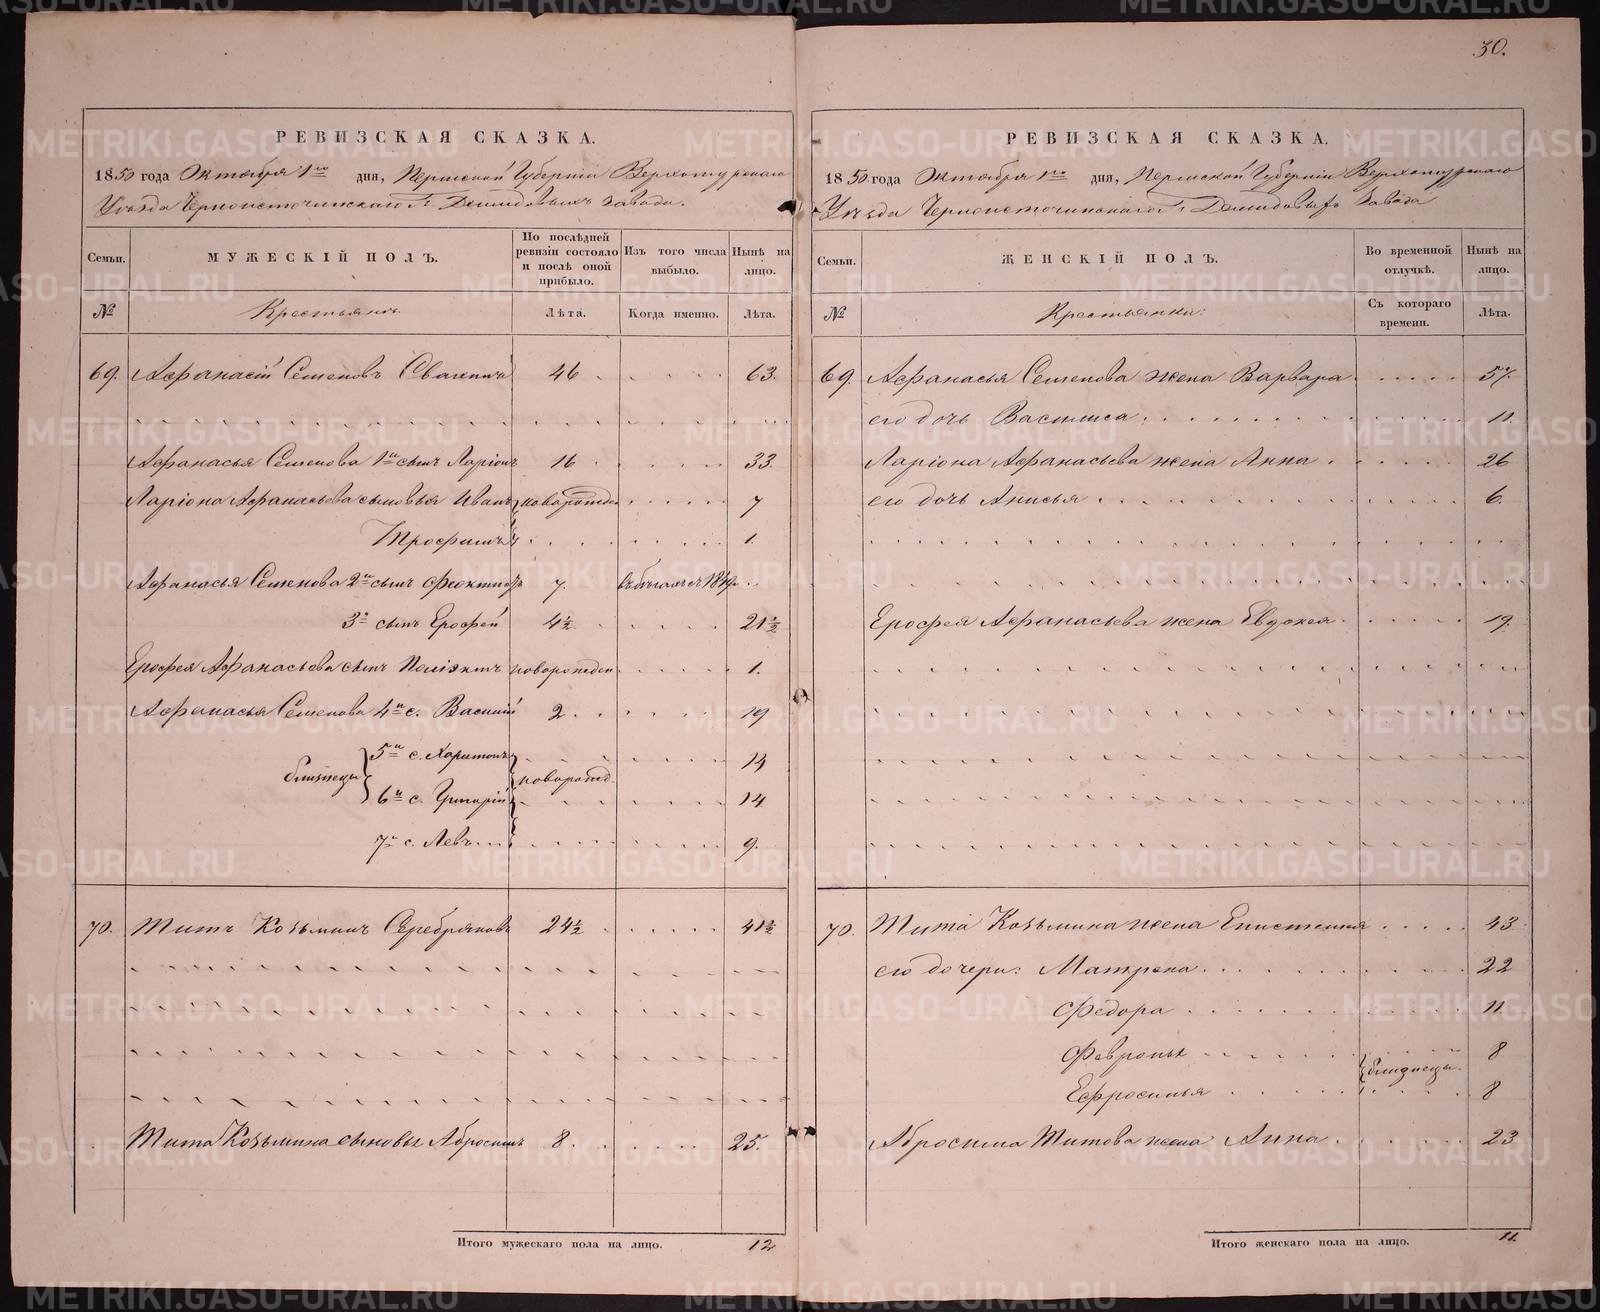 30.
РЕВИЗСКАЯ СКАЗКА.
1850 года Октября 1го дня, Пермской Губерніи Верхотурскаго
Уѣзда Черноисточинскаго Гг Демидовыхъ завода.
Семьи. МУЖЕСКІЙ ПОЛЪ. По послѣдней ревизіи состояло и послѣ оной прибыло. Изъ того числа выбыло. Нынѣ на лицо.
№ Крестьянъ. Лѣта. Когда именно. Лѣта.
69. Афанасій Семеновъ 46 63.
Афанасья Семенова 1й сынъ Ларіонъ 16 33.
Ларіона Афанасьева сыновья Иванъ новорожден 7
Трофимъ 1.
Афанасья Семенова 2й сынъ Феоктистъ 7. въ бѣгахъ с
3й сынъ Ерофей 4½ 21½
Ерофея Афанасьева сынъ новорожден 1.
Афанасья Семенова 4й с. Василій 2 19
близнецы 5й с. Харитонъ новорожд. 14
6й с. Григорій 14
7й с. Левъ 9.
70. Титъ Козьминъ Серебряковъ 24½ 41½
Тита Козьмина сыновья Абросимъ 8. 25.
Итого мужескаго пола на лицо. 12
РЕВИЗСКАЯ СКАЗКА.
1850 года Октября 1го дня, Пермской Губерніи Верхотурскаго
Уѣзда Черноисточинскаго Гг Демидовыхъ Завода
Семьи. ЖЕНСКІЙ ПОЛЪ. Во временной отлучкѣ. Нынѣ на лицо.
№ Крестьянки: Съ котораго времени. Лѣта.
69. Афанасья Семенова жена Варвара 57.
его дочь Василиса 11
Ларіона Афанасьева жена Анна 26
его дочь Анисья 6.
Ерофея Афанасьева жена Евдокея 19.
70. Тита Козьмина жена Епистимия 43
его дочери: Матрена 22
Федора 11
Февронья близнецы 8
Ефросинья 8
Абросима Титова жена Анна 23
Итого женскаго пола на лицо. 11.
METRIKI.GASO-URAL.RU